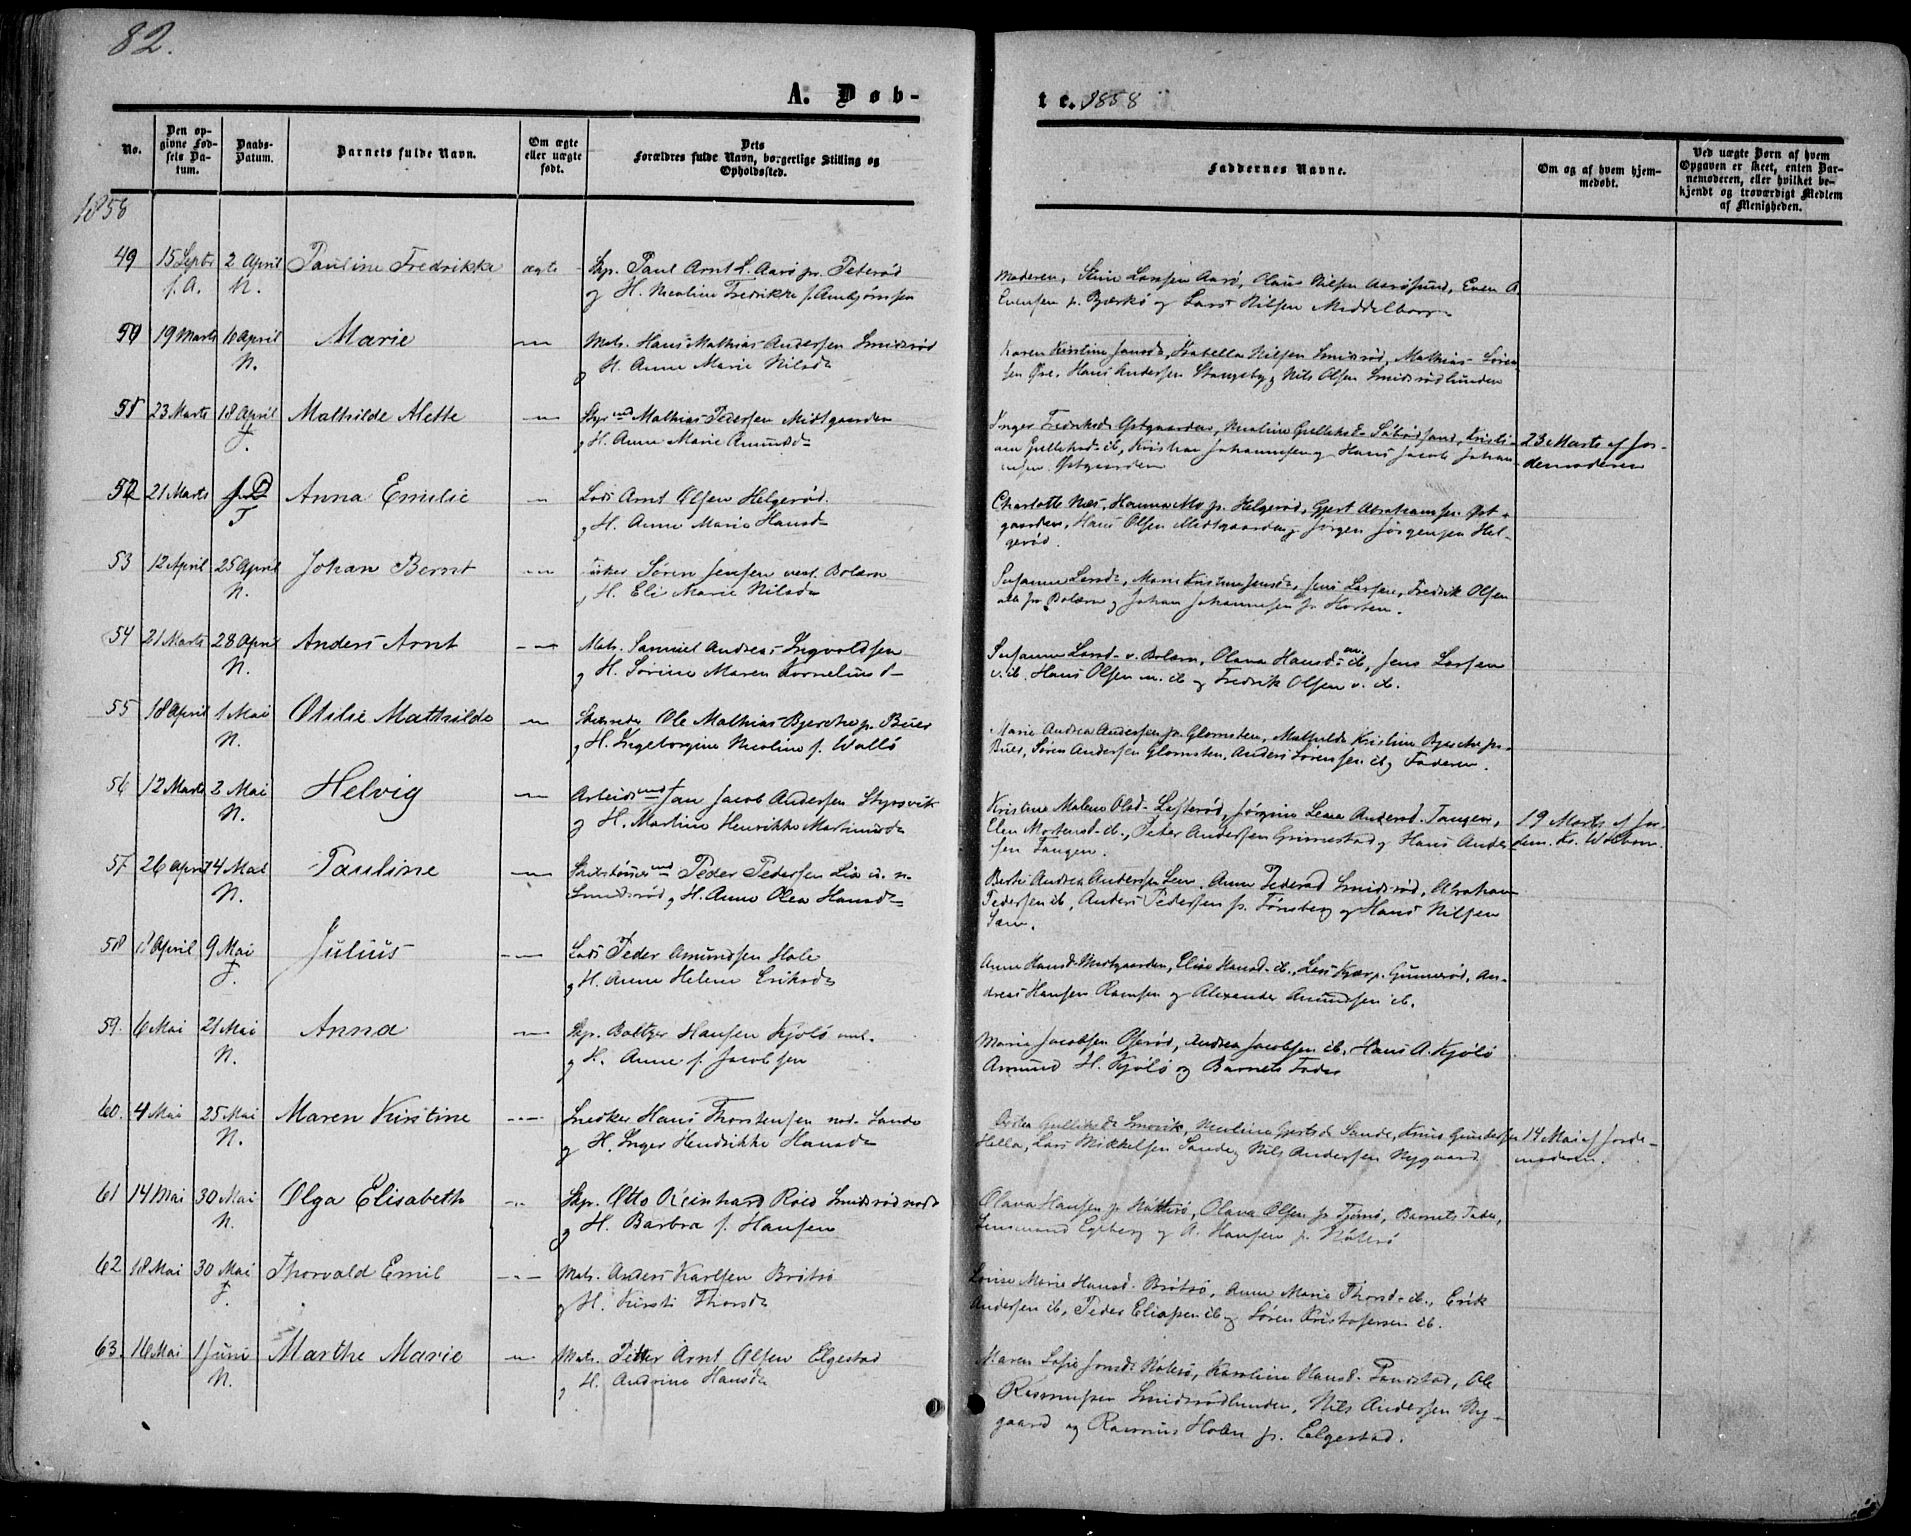 82.
A. Døb-
te. 1858
No.
Den op-
givne Fød-
sels Da-
tum.
Daabs-
Datum.
Barnets fulde Navn.
Om ægte
eller uægte
født.
Dets
Forældres fulde Navn, borgerlige Stilling og
Opholdssted.
Faddernes Navne.
Om og af hvem hjem-
medøbt.
Ved uægte Børn af hvem
Opgaven er skeet, enten Bar-
nemoderen, eller hvilket be-
kjendt og troværdigt Medlem
af Menigheden.
1858
49 15 Septr 2 April Pauline Fredrikke ægte Skp. Paul Arnt L. Aarø pr. Teterød
f.A. N. og H. Nicoline Fredrikke f. Arnbjørnsen
Moderen, Stine Larsen Aarø, Claus Nilsen Aarøsund, Even A.
Evensen p. Bjerkø og Lars Nilsen Middelborg
50 19 Marts 10 April Marie — Mats. Hans Mathias Andersen Smidsrød
N. og H. Anne Marie Nilsd
Karen Kristine Jansd, Isabella Nilsen Smidsrød, Mathias Søren-
sen Øre, Hans Andersen Stangeby og Nils Olsen Smidsrødlunden
51 23 Marts 18 April Mathilde Alette — Styrmd Mathias Pedersen Midtgaarden
T. og H. Anne Marie Amundsd
Inger Fredriksd Østgaarden, Nicoline Gulleksd Søbøsand, Kristi-
an Gulleksd ib, Kristian Johannesen og Hans Jacob Johan-
nesen Østgaarden
23 Marts af Jor-
demoderen
52 21 Marts T Anna Emilie — Lods Arnt Olsen Helgerød.
og H. Anne Marie Hansd
Charlotte Næs, Hanna Mo p. Helgerød, Gjert Abrahamsen Øst-
gaarden, Hans Olsen Midtgaarden og Jørgen Jørgensen Hel-
gerød.
53 12 April 25 April Johan Bernt — Fisker Søren Jensen vest. Bolærn
N. og H. Eli Marie Nilsd
Susanne Larsd, Maren Kristine Jensd, Jens Larsen, Fredrik Olsen
alle fr Bolærn og Johan Johannesen p. Horten.
54 21 Marts 28 April Anders Arnt — Mats. Samuel Andreas Ingvoldsen
N. og H. Sørine Maren Korneliusd
Susanne Larsd v. Bolærn, Olava Hansd m. ib, Jens Larsen
v. ib. Hans Olsen m. ib og Fredrik Olsen v. ib.
55 18 April 1 Mai Otilie Mathilde — Skræder Ole Mathias Bjerche p. Buer
N. og H. Ingeborgine Nicoline f. Wallø
Marie Andrea Andersen p. Glomsten, Mathilde Kristine Bjerche p.
Buer, Søren Andersen Glomsten, Anders Sørensen ib og Faderen.
56 12 Marts 2 Mai Helvig — Arbeidsmd Jan Jacob Andersen Styrsvik
N. og H. Martine Henrikke Martinusd
Kristine Malene Olsd Lofterød, Jørgine Lena Andersd Tangen,
Elen Mortensd ib., Peter Andersen Grimestad og Hans Ander-
sen Tangen.
19 Marts af Jor-
dem. Kr.
57 26 April 4 Mai Pauline — Skibstømmermd Peder Pedersen Lia
N. Smidsrød og H. Anne Olea Hansd
Berte Andrea Andersen Leen, Anne Pedersd Smidsrød, Abraham
Pedersen ib, Anders Pedersen p. Tønsberg og Hans Nilsen
Sam.
58 11 April 9 Mai Julius — Lods Peder Amundsen Hole
T. og H. Anne Helene Eriksd
Anne Hansd Midtgaarden, Elise Hansd ib., Lars Kjær p. Gunnerød, An-
dreas Hansen Ramsen og Alexander Amundsen ib.
59. 6 Mai 21 Mai Anna — Skp. Baltzer Hansen Kjølø
N. og H. Anne f. Jacobsen
Marie Jacobsen Oserød, Andrea Jacobsen ib, Hans A. Kjølø
Amund H. Kjølø og Barnets Fader
60. 4 Mai 25 Mai Maren Kirstine — Snedker Hans Thorstensen nod. Sande
N. og H. Inger Hendrikke Hansd
Gulliksd Smørvik, Nicoline Gjertsd Sande, Knud Gundersen
Hella, Lars Mikkelsen Sande og Nils Andersen Nygaard
14 Mai af Jorde-
moderen.
61 14 Mai 30 Mai Olga Elisabeth — Skp. Otto Reinhard Roed Smidsrød
N. og H. Barbra f. Hansen
Olava Hansen p. Nøtterø, Olava Olsen p. Tjømø, Barnets Fader,
Lensmand Egeberg og A. Hansen p. Nøtterø
62 18 Mai 30 Mai Thorvald Emil — Mats. Anders Karlsen Brøtsø
T. og H. Kirsti Thorsd
Louise Marie Hansd. Brøtsø, Anne Marie Thorsd ib., Erik
Andersen ib, Peder Eliasen ib og Søren Kristofersen ib.
63. 16 Mai 1 Juni Marthe Marie — Mats. Petter Arnt Olsen Elgestad
N. og H. Andrine Hansd
Maren Sofie Jonsd Nøterø, Karoline Hansd. Tandstad, Ole
Rasmussen Smidsrødlunden, Nils Andersen Ny-
gaard og Rasmus Holm p. Elgestad.